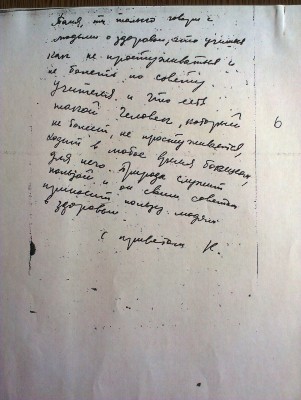 Ваня, ты только говори с
людьми о здоровьи, это учение
как не простуживаться и
не болеть по совету
учителя и что есть
такой Человек который
не болеет, не простуживается,
ходит в любое время босиком,
для него Природа служит
пользой и он своим советом
приносит пользу людям
о здоровьи.
С приветом И.
6